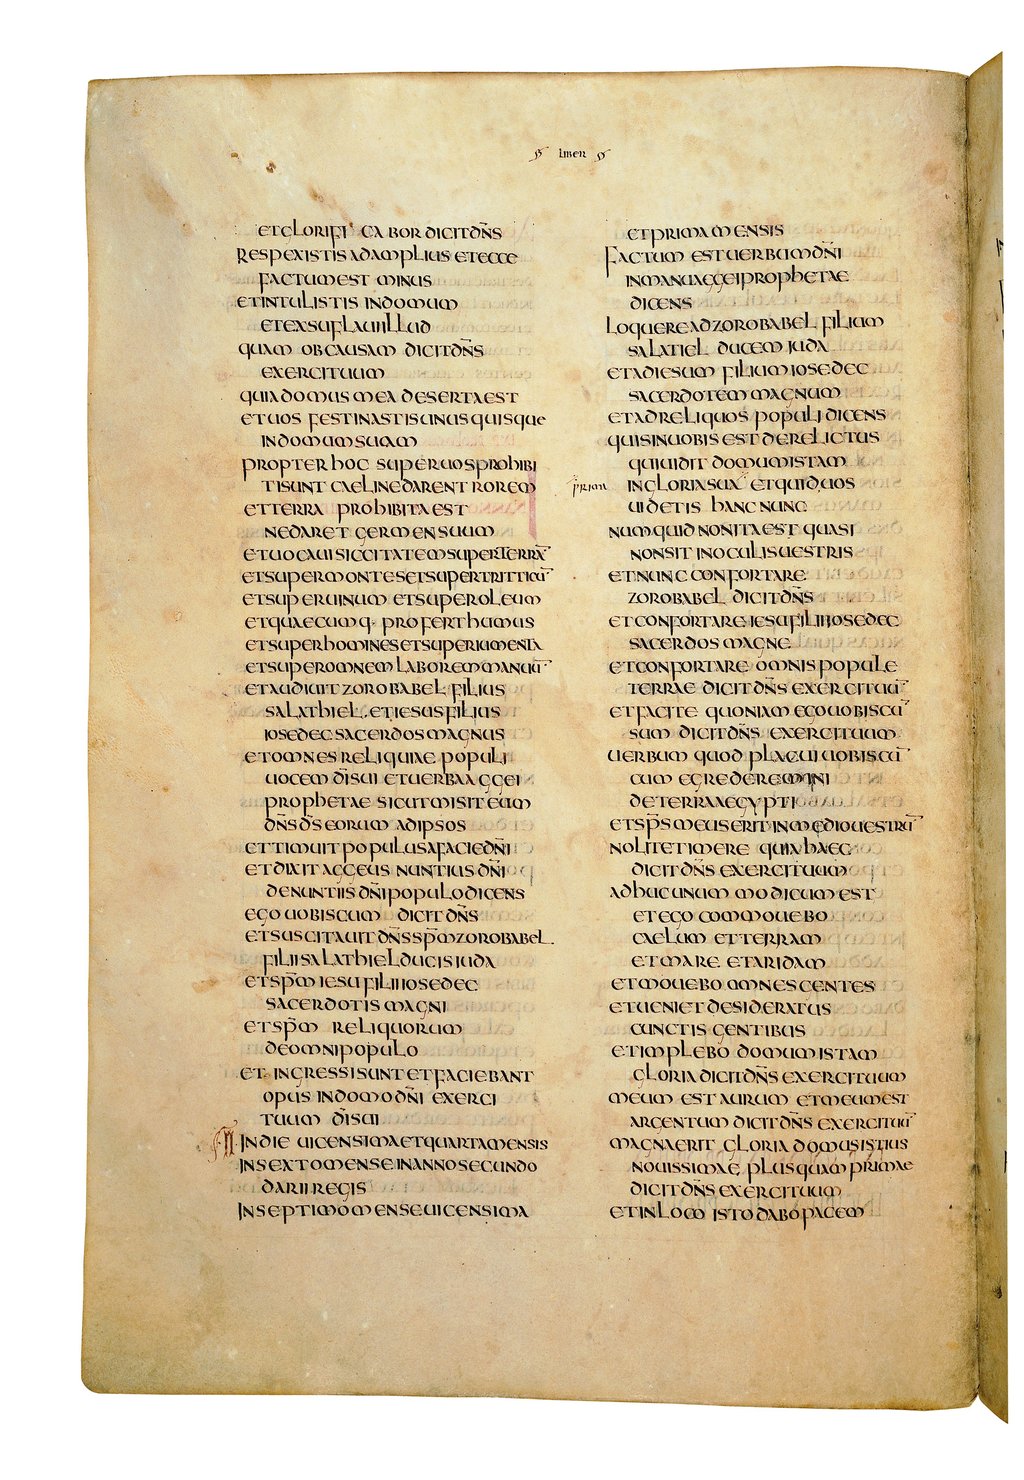 liber
et glorifi cabor dicit dn̄s
Respexistis ad amplius et ecce
factum est minus
et intulistis in domum
et exsuflaui illud
quam ob causam dicit dn̄s
exercituum
quia domus mea deserta est
et uos festinastis unusquisque
in domum suam
propter hoc super uos prohibi
ti sunt caeli ne darent rorem
et terra prohibita est
ne daret germen suum
et uocaui siccitatem super terrā
et super montes et super triticū
et super uinum et super oleum
et quaecumq· profert humus
et super homines et super iumenta
et super omnem laborem manuū
et audiuit zorobabel filius
salathiel et iesus filius
iosedec sacerdos magnus
et omnes reliquiae populi
uocem dī sui et uerba aggei
prophetae sicut misit eum
dn̄s ds̄ eorum ad ipsos
et timuit populus a facie dn̄i
et dixit aggeus nuntius dn̄i
de nuntiis dn̄i populo dicens
ego uobiscum dicit dn̄s
et suscitauit dn̄s sp̄m zorobabel
filii salathiel ducis iuda
et sp̄m iesu filii iosedec
sacerdotis magni
et sp̄m reliquorum
de omni populo
et ingressi sunt et faciebant
opus in domo dn̄i exerci
tuum dī sui
In die uicensima et quarta mensis
in sexto mense in anno secundo
darii regis
In septimo mense uicensima
et prima mensis
Factum est uerbum dn̄i
in manu aggei prophetae
dicens
loquere ad zorobabel filium
salatiel ducem iuda
et ad iesum filium iosedec
sacerdotem magnum
et ad reliquos populi dicens
quis in uobis est derelictus
qui uidit domum istam
in gloria sua prima et quid uos
uidetis hanc nunc
numquid non ita est quasi
non sit in oculis uestris
et nunc confortare
zorobabel dicit dn̄s
et confortare iesu filii iosedec
sacerdos magne
et confortare omnis popule
terrae dicit dn̄s exercituū
et facite quoniam ego uobiscū
sum dicit dn̄s exercituum
uerbum quod placui uobiscū
cum egrederemini
de terra aegypti
et sp̄s meus erit in medio uestrū
nolite timere quia haec
dicit dn̄s exercituum
adhuc unum modicum est
et ego commouebo
caelum et terram
et mare et aridam
et mouebo omnes gentes
et ueniet desideratus
cunctis gentibus
et implebo domum istam
gloria dicit dn̄s exercituum
meum est aurum et meum est
argentum dicit dn̄s exercituū
magna erit gloria domus istius
nouissimae plus quam primae
dicit dn̄s exercituum
et in loco isto dabo pacem